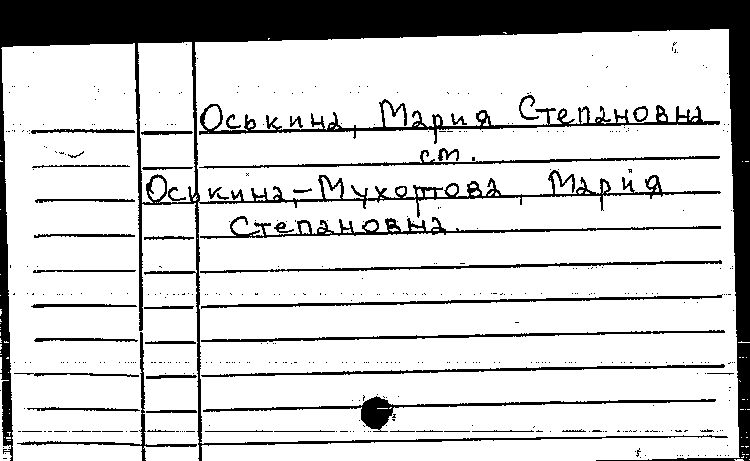 Оськина, Мария Степановна
см.
Оськина-Мухортова, Мария
Степановна.